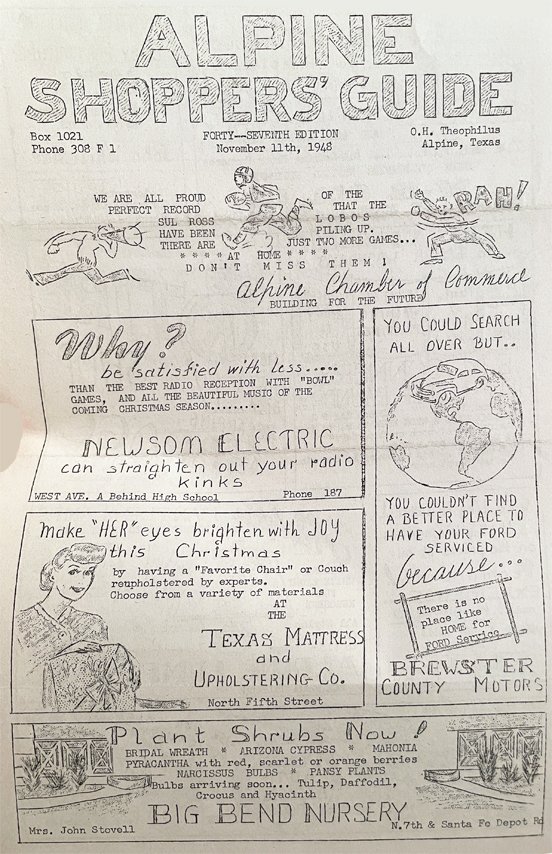 ALPINE
SHOPPERS' GUIDE
Box 1021
Phone 308 F 1
FORTY--SEVENTH EDITION
November 11th, 1948
O.H. Theophilus
Alpine, Texas
WE ARE ALL PROUD OF THE
PERFECT RECORD THAT THE
SUL ROSS LOBOS
HAVE BEEN PILING UP.
THERE ARE JUST TWO MORE GAMES...
* * * * AT HOME * * * *
DON'T MISS THEM!
RAH!
Alpine Chamber of Commerce
BUILDING FOR THE FUTURE
Why?
be satisfied with less.....
THAN THE BEST RADIO RECEPTION WITH "BOWL"
GAMES, AND ALL THE BEAUTIFUL MUSIC OF THE
COMING CHRISTMAS SEASON.........
NEWSOM ELECTRIC
can straighten out your radio
kinks
WEST AVE. A Behind High School Phone 187
YOU COULD SEARCH
ALL OVER BUT..
YOU COULDN'T FIND
A BETTER PLACE TO
HAVE YOUR FORD
SERVICED
because...
There is no
place like
HOME for
FORD Service
BREWSTER
COUNTY MOTORS
Make "HER" eyes brighten with JOY
this Christmas
by having a "Favorite Chair" or Couch
reupholstered by experts.
Choose from a variety of materials
AT
THE
TEXAS MATTRESS
and
UPHOLSTERING CO.
North Fifth Street
Plant Shrubs Now!
BRIDAL WREATH * ARIZONA CYPRESS * MAHONIA
PYRACANTHA with red, scarlet or orange berries
NARCISSUS BULBS * PANSY PLANTS
Bulbs arriving soon... Tulip, Daffodil,
Crocus and Hyacinth
BIG BEND NURSERY
Mrs. John Stovell N.7th & Santa Fe Depot Rd